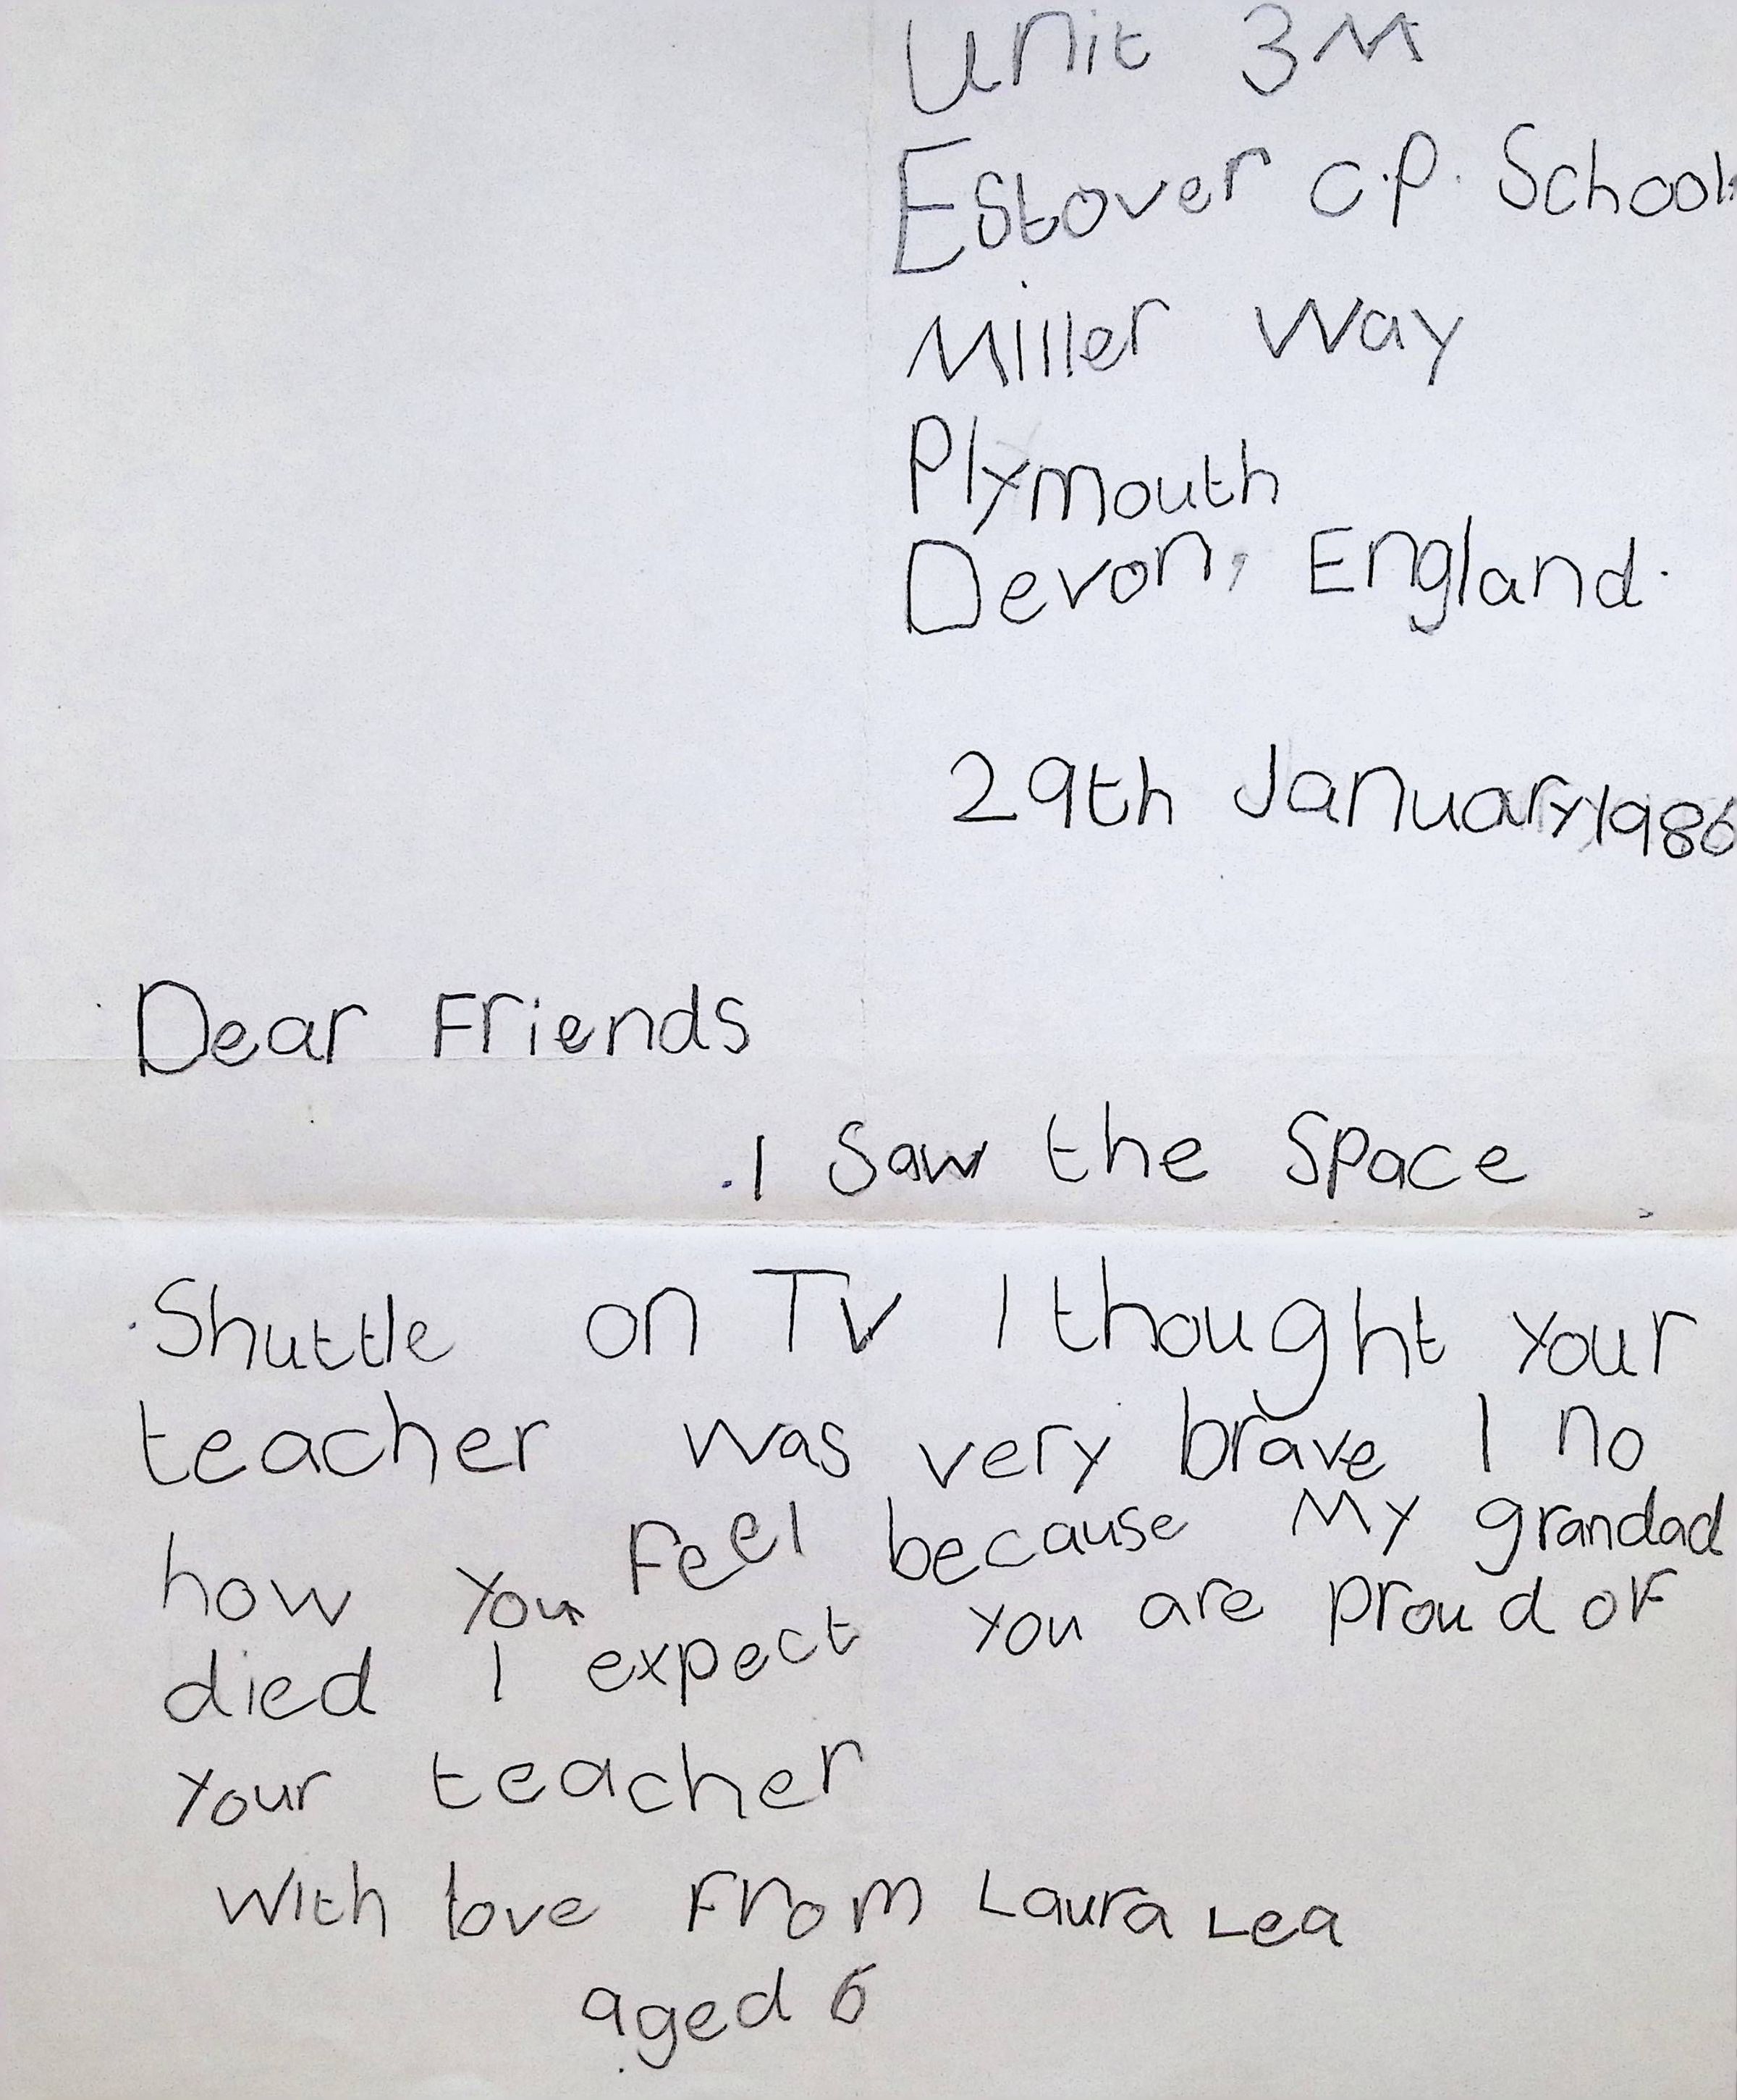 Unit 3M
Estover C.P. School
Miller Way
Plymouth
Devon, England.
29th January 1986
Dear Friends
I Saw the Space
Shuttle on TV I thought your
teacher was very brave I no
how you feel because My grandad
died I expect you are proud of
your teacher
With love From Laura Lea
aged 6